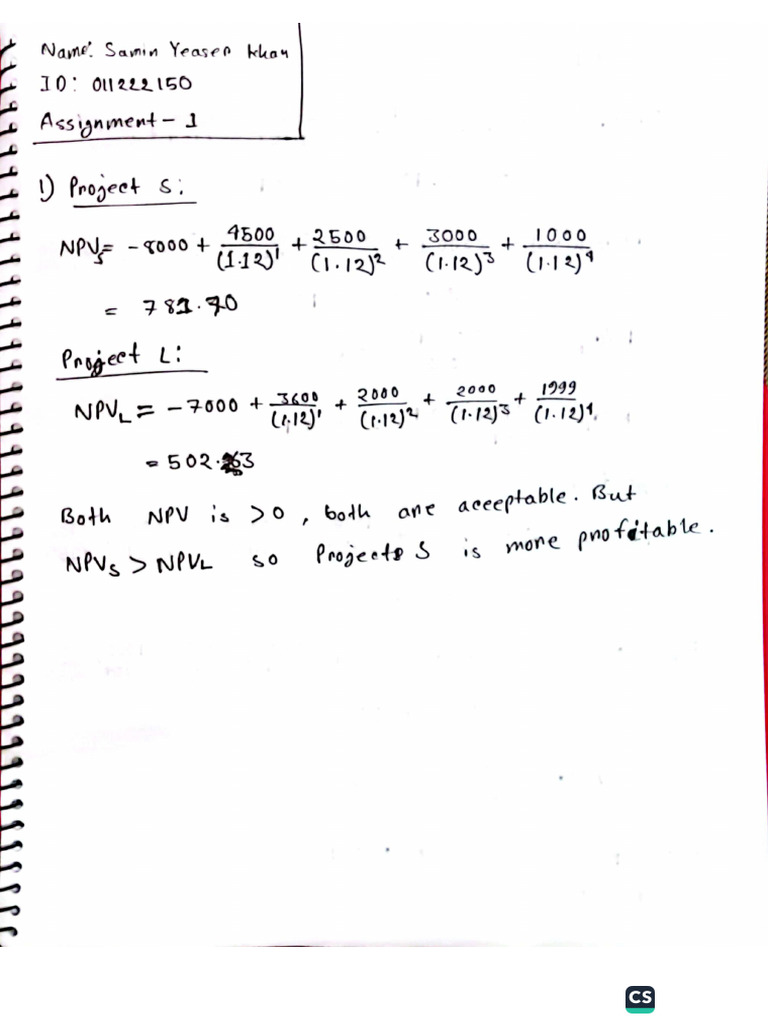 Name: Samin Yeaser Khan
ID: 011222150
Assignment - 1
1) Project S:
NPVs = -8000 + 4500/(1.12)^1 + 2500/(1.12)^2 + 3000/(1.12)^3 + 1000/(1.12)^4
= 781.70
Project L:
NPVL = -7000 + 3600/(1.12)^1 + 2000/(1.12)^2 + 2000/(1.12)^3 + 1999/(1.12)^4
= 502.63
Both NPV is >0, both are acceptable. But
NPVs > NPVL so Projects S is more profitable.
CS